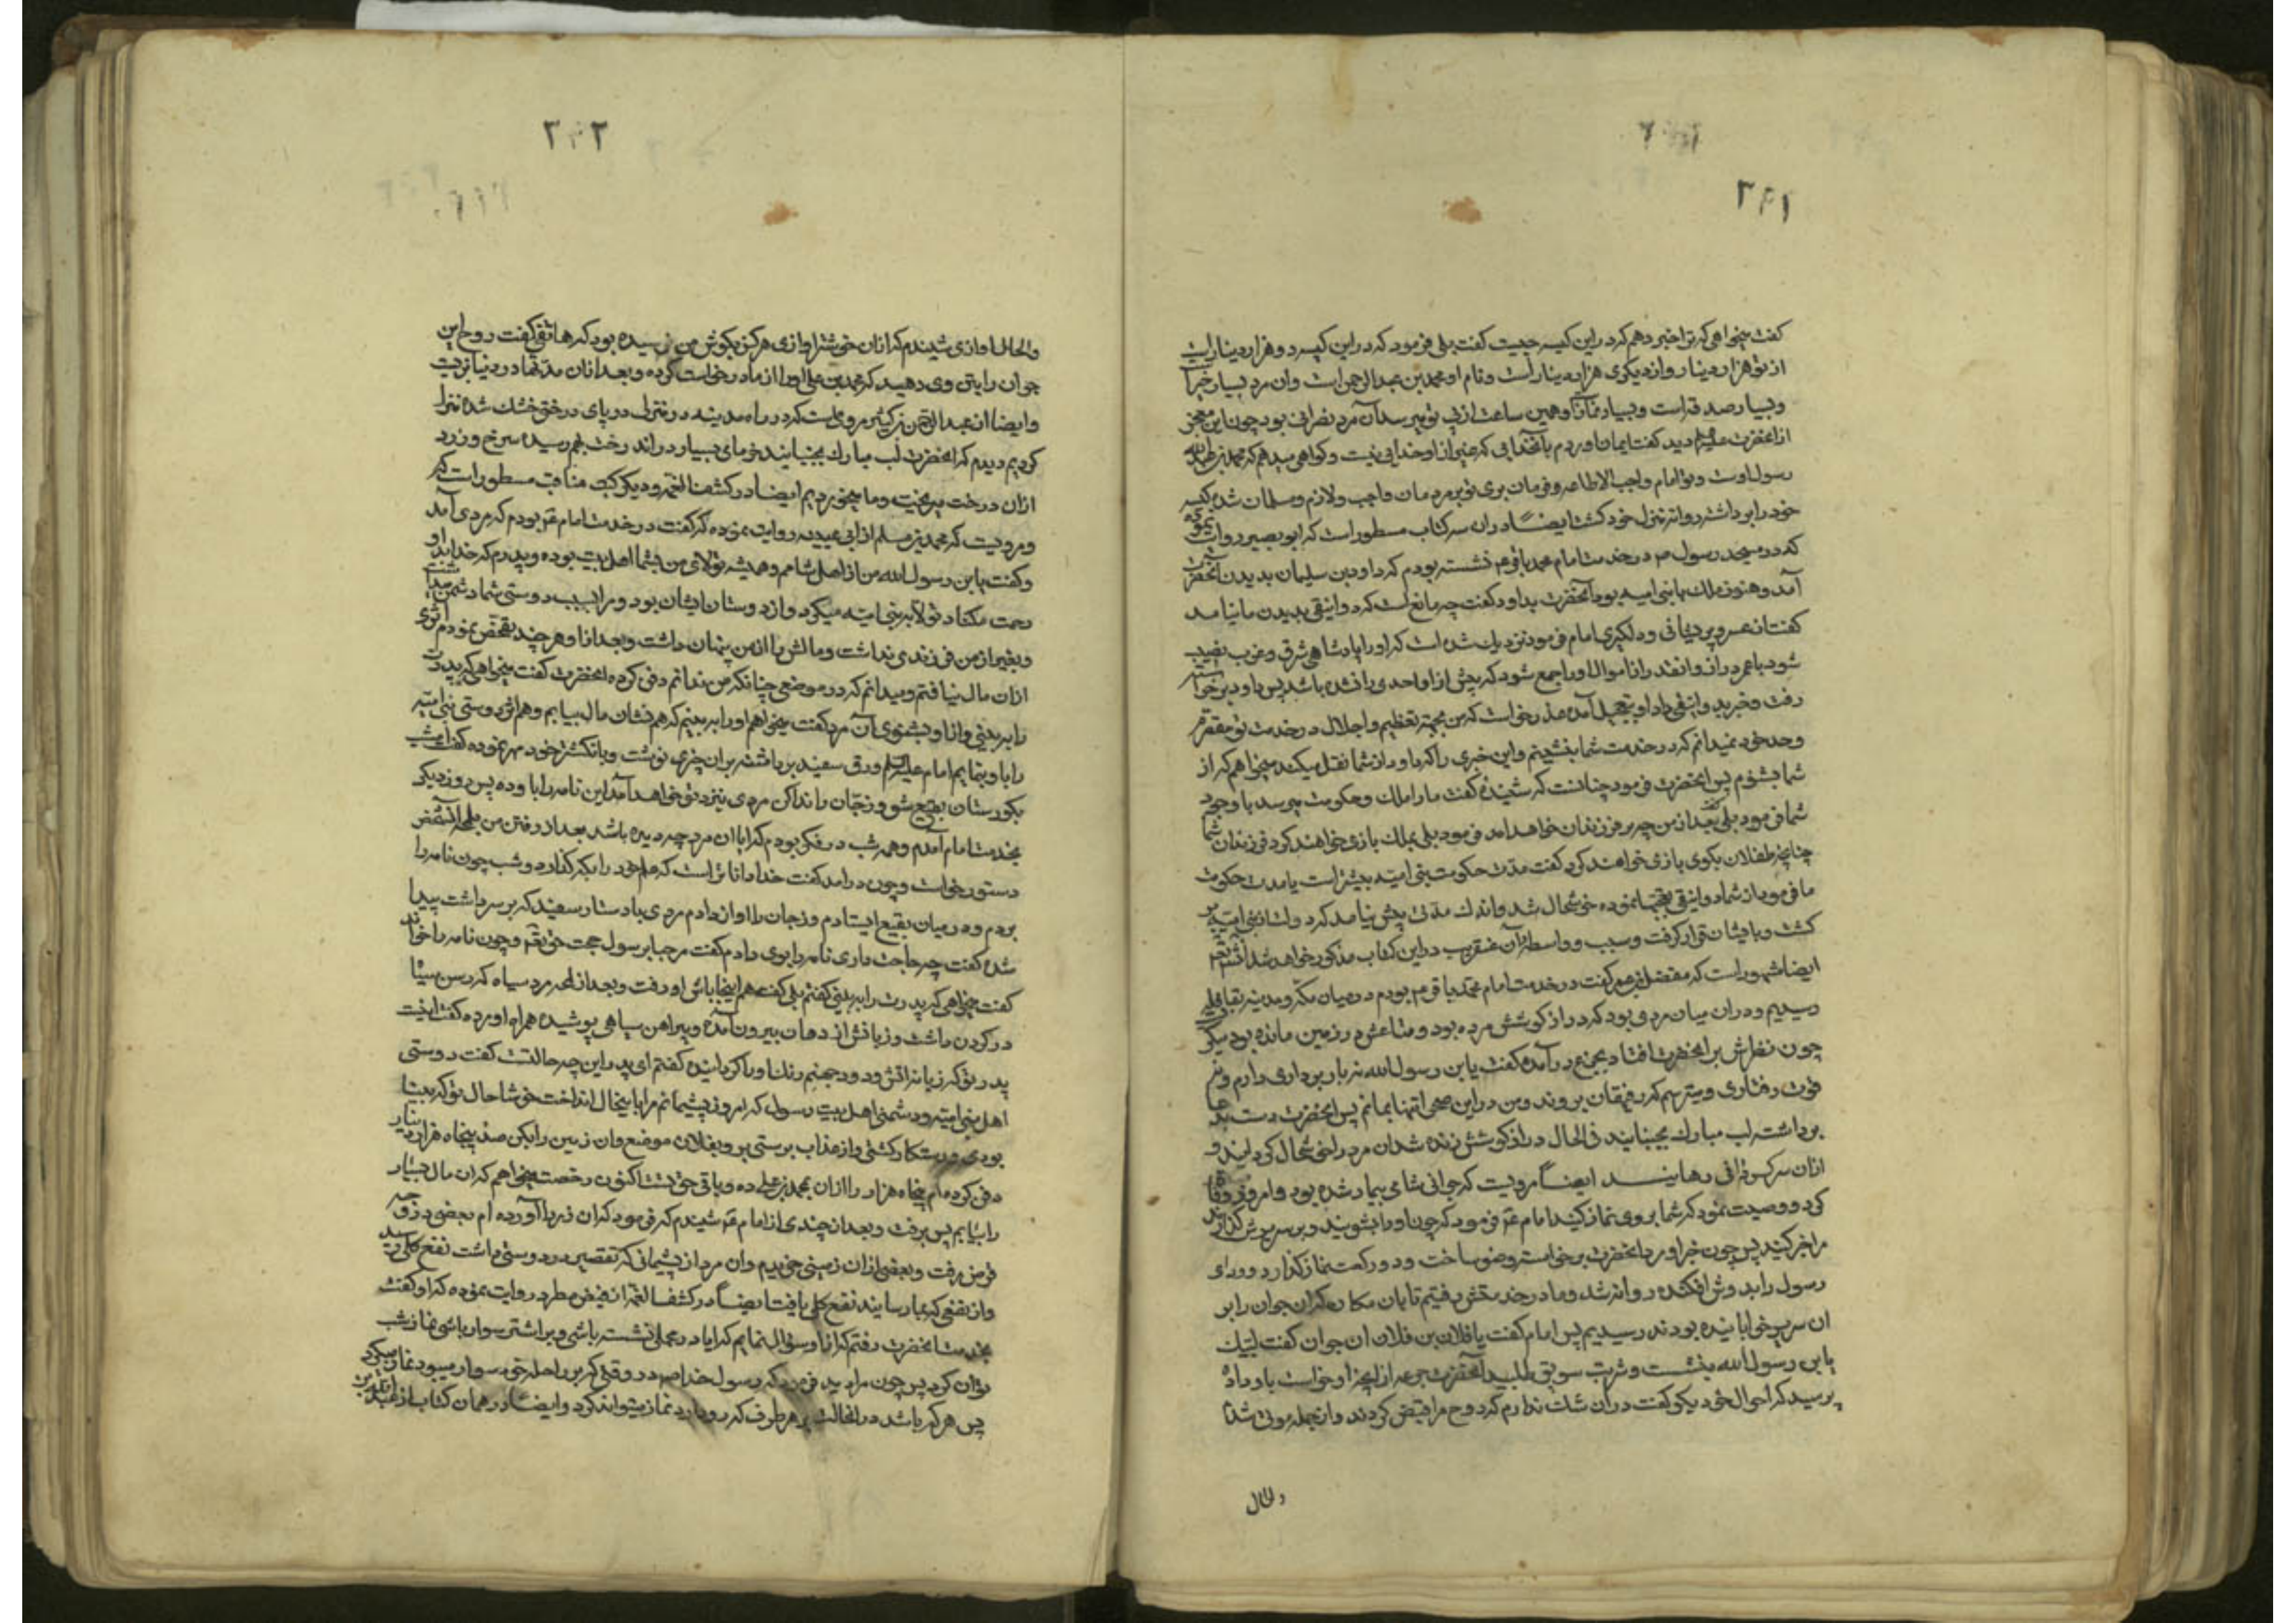 ۲۴۱
کفت میخواهی که ترا خبر دهم که در این کیسه چیست کفت بلی فرمود که در این کیسه دو هزار دینار است
از تو هزار دینار و از دیکری هزار دینار است و نام او محمد بن عبد الرحمن است وان مرد بسیار خیر
و بسیار صدقه است و بسیار نماز و همین ساعت از پی تو میرسد آن مرد نصرانی بود چون این معجز
از انحضرت علیه السلم دید کفت ایمان اوردم بانخدایی که غیر از او خدایی نیست و کواهی میدهم که محمد بن عبدالله
رسول اوست و تو امام واجب الاطاعه و فرمان بری تو بر مردمان واجب و لازم و مسلمان شده کیسه
خود را برداشته روانه منزل خود کشت ایضا در ان سه کتاب مسطور است که ابو بصیر روایت نموده
که در مسجد رسول ص در خدمت امام محمد باقر ع نشسته بودم که داود بن سلیمان بدیدن آنحضرت
آمد و هنوز ملک بابنی امیه بود آنحضرت بداود کفت چه مانع است که دوانیقی بدیدن ما نیامد
کفت از عسر و پریشانی و دلکیری امام فرمود نزدیک شده است که او را پادشاهی شرق و غرب نصیب
شود با عمر دراز و انقدر از اموال او را جمع شود که پیش از او احدی را نشده باشد پس داود برخواسته
رفت و خبر بدوانیقی داد او بتعجیل آمده عذر خواست که من بجهة تعظیم و اجلال در خدمت تو مقصرم
و حد خود نمیدانم که در خدمت شما بنشینم و این خبری را که داود از شما نقل میکند میخواهم که از
شما بشنوم پس انحضرت فرمود چنانست که شنیدهٔ کفت ما را ملک و حکومت میرسد با وجود
شما فرمود بلی کفت بعد از من چه بر فرزندان خواهد امد فرمود بلی بملک بازی خواهند کرد فرزندان شما
چنانچه طفلان بکوی بازی خواهند کرد کفت مدت حکومت بنی امیه بیشتر است یا مدت حکومت
ما فرمود از شما دوانیقی تعجبها نموده خوشحال شد و اندک مدتی پیش نیامد که دولت از بنی امیه بر
کشت و بایشان قرار کرفت و سبب و واسطهٔ آن عنقریب در این کتاب مذکور خواهد شد
ایضا مشهور است که مفضل بن عمر کفت در خدمت امام محمد باقر ع بودم در میان مکه و مدینه بقافله
رسیدیم و در ان میان مردی بود که دراز کوشش مرده بود و متاعش در زمین مانده بود میکر
چون نظرش بر انحضرت افتاد بجزع در آمده کفت یابن رسول الله نه باربرداری دارم و نه
قوت رفتاری و میترسم که رفیقان بروند و من در این صحرا تنها بمانم پس انحضرت دست بدعا
برداشته لب مبارک بجنبانیند فی الحال دراز کوشش زنده شد ان مرد را خوشحال کردانید و
از ان سرکردانی رهانیند ایضا مرویست که جوانی شامی بیمار شده بود و امروز وفات
کرد و وصیت نمود که شما بروی نماز کنید امام ع فرمود که چون او را بشویند و بر سریرش کذارند
مرا خبر کنید پس چون خبر اورد انحضرت برخواسته وضو ساخت و دو رکعت نماز کذارد و ردای
رسول را بدوش افکنده روانه شد و ما در خدمتش رفتیم تا بان مکان که ان جوان را بر
ان سریر خوابانیده بودند رسیدیم پس امام کفت یا فلان بن فلان ان جوان کفت لبیک
یابن رسول الله بنشست و شربت سویق طلبید آنحضرت جرعه از انچه او خواست باو داد
پرسید که احوال خود بکو کفت در ان شک ندارم که روح مرا قبض کردند و از جمله موتی شدم
والحال
۲۴۲
والحال اوازی شنیدم که از ان خوشتر اوازی هرکز بکوش من نرسیده بود که هاتفی کفت روح این
جوان را باتن وی دهید که محمد بن علی او را از ما درخواست کرده و بعد از ان مدتها در دنیا بزیست
و ایضا از عبد الرحمن بن کثیر مرویست که در راه مدینه در منزلی در پای درختی خشک شده نزول
کردیم دیدم که انحضرت لب مبارک بجنبانیند خرمای بسیار در اند رخت بهم رسیده سرخ و زرد
ازان درخت میریخت و ما میخوردیم ایضا در کشف الغمه و دیکر کتب مناقب مسطور است که
و مرویست که محمد بن مسلم از ابی عیینه روایت نموده که کفت در خدمت امام ع بودم که مردی آمد
و کفت یابن رسول الله من از اهل شامم و همیشه تولای من بشما اهل بیت بوده و پدرم که خدا باو
رحمت مکناد تولا به بنی امیه میکرد و از دوستان ایشان بود و مرا بسبب دوستی شما دشمن میداشت
و بغیر از من فرزندی نداشت و مالش را از من پنهان داشت و بعد از او هر چند تفحص نمودم اثری
ازان مال نیافتم و میدانم که در موضعی چنانکه من ندانم دفن کرده انحضرت کفت میخواهی که پدرت
را به بینی و از او بشنوی آن مرد کفت میخواهم او را به بینم که هم نشان مال بیابم و هم اثر دوستی بنی امیه
را باو بنمایم امام علیه السلم ورق سفید برداشته بر ان چیزی نوشت و بانکشتر خود مهر نموده کفت امشب
بکورستان بقیع شو و زجان را نداکن مردی بنزد تو خواهد آمد این نامه را باو ده پس روز دیکر
بخدمت امام آمدم و همه شب در فکر بودم که ایا ان مرد چه دیده باشد بعد از رفتن من ان شخص
دستور خواست و چون در امد کفت خدا داناتر است که علم خود را بکه کذارد دوشب چون نامه را
بردم و در میان بقیع ایستادم و زجان را اواز دادم مردی بادستار سفید که بر سر داشت پیدا
شده کفت چه حاجت داری نامه را بوی دادم کفت مرحبا برسول حجت حق تع و چون نامه را خواند
کفت میخواهی که پدرت را به بینی کفتم بلی کفت هم اینجا باش او رفت و بعد از لحه مرد سیاه که رسن سیاه
در کردن داشت و زبانش از دهان بیرون آمده و پیراهن سیاهی پوشیده همراه اورده کفت اینست
پدر تو که زبانه اتش و دود جهنم رنک او را کردانیده کفتم ای پدر این چه حالتست کفت دوستی
اهل بنی امیه و دشمنی اهل بیت رسول که امروز پشیمانم مرا باینحال انداخت خوشا حال تو که بینا
بودی و رستکار کشتی و از عذاب برستی برو بفلان موضع وان زمین را بکن صد پنجاه هزار دینار
دفن کرده ام پنجاه هزار را ازان بمحمد بن علی ده و باقی حق تست اکنون رخصت میخواهم که ان مال بسیار
را بیابم پس برفت و بعد از چندی از امام ع شنیدم که فرمود که ان زر را آورده ام بعضی در وجه
قرض رفت و بعضی ازان زمینی خریدیم وان مرد از پشیمانی که تقصیر در دوستی داشت نفع کلی رسید
وازنفعی که بما رسانیند نفع کلی یافت ایضا در کشف الغمه از فیض مطر در روایت نموده که او کفت
بخدمت انحضرت رفتم که از او سؤال نمایم که ایا در محملی نشسته باشی و بر اشتر سوار باشی نماز شب
توان کرد پس چون مرا دید فرمود که رسول خدا ص در وقتی که بر راحله خود سوار میبود نماز میکرد
پس هر که باشد در انحالت بر هر طرف که رو دارد نماز میتواند کرد و ایضا در همان کتاب از عبد الله بن